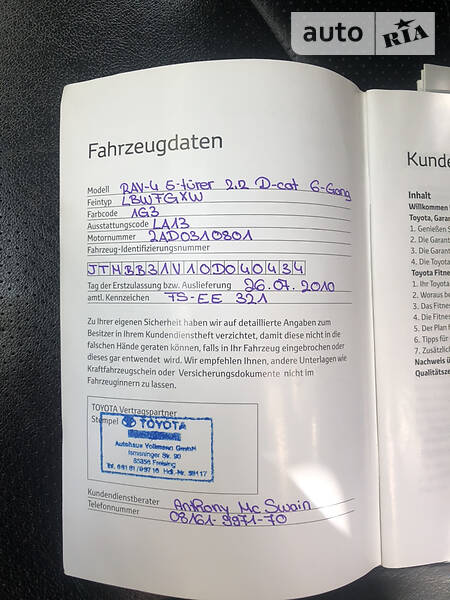 auto RIA
Fahrzeugdaten
Modell RAV-4 5-türer 2.2 D-cat 6-Gang
Feintyp LBWFGXW
Farbcode 1G3
Ausstattungscode LA13
Motornummer 2AD0310801
Fahrzeug-Identifizierungsnummer
JTMBB31V10D040434
Tag der Erstzulassung bzw. Auslieferung 26.07.2010
amtl. Kennzeichen TS-EE 321
Zu Ihrer eigenen Sicherheit haben wir auf detaillierte Angaben zum
Besitzer in Ihrem Kundendienstheft verzichtet, damit diese nicht in die
falschen Hände geraten können, falls in Ihr Fahrzeug eingebrochen oder
dieses gar entwendet wird. Wir empfehlen Ihnen, andere Unterlagen wie
Kraftfahrzeugschein oder Versicherungsdokumente nicht im
Fahrzeuginnern zu lassen.
TOYOTA Vertragspartner
Stempel TOYOTA
Autohaus Volkmann GmbH
Ismaninger Str. 90
85356 Freising
Kundendienstberater Anthony Mc Swain
Telefonnummer 08161-9971-70
Kunde
Inhalt
Willkommen
Toyota, Garan
1. Genießen S
2. Die Garant
3. Die Garant
4. Die Toyota
Toyota Fitnes
1. Ihr Toyota
2. Woraus be
3. Das Fitnes
4. Die Fitnes
5. Der Plan f
6. Tipps für
7. Zusätzlich
Nachweis ü
Qualitätsze